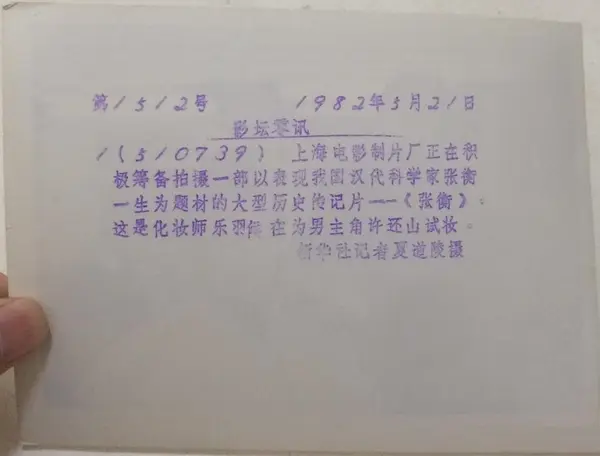 第1512号 1982年5月21日
影坛零讯
1（510739） 上海电影制片厂正在积
极筹备拍摄一部以表现我国汉代科学家张衡
一生为题材的大型历史传记片——《张衡》。
这是化妆师乐羽 在为男主角许还山试妆。
新华社记者夏道陵摄